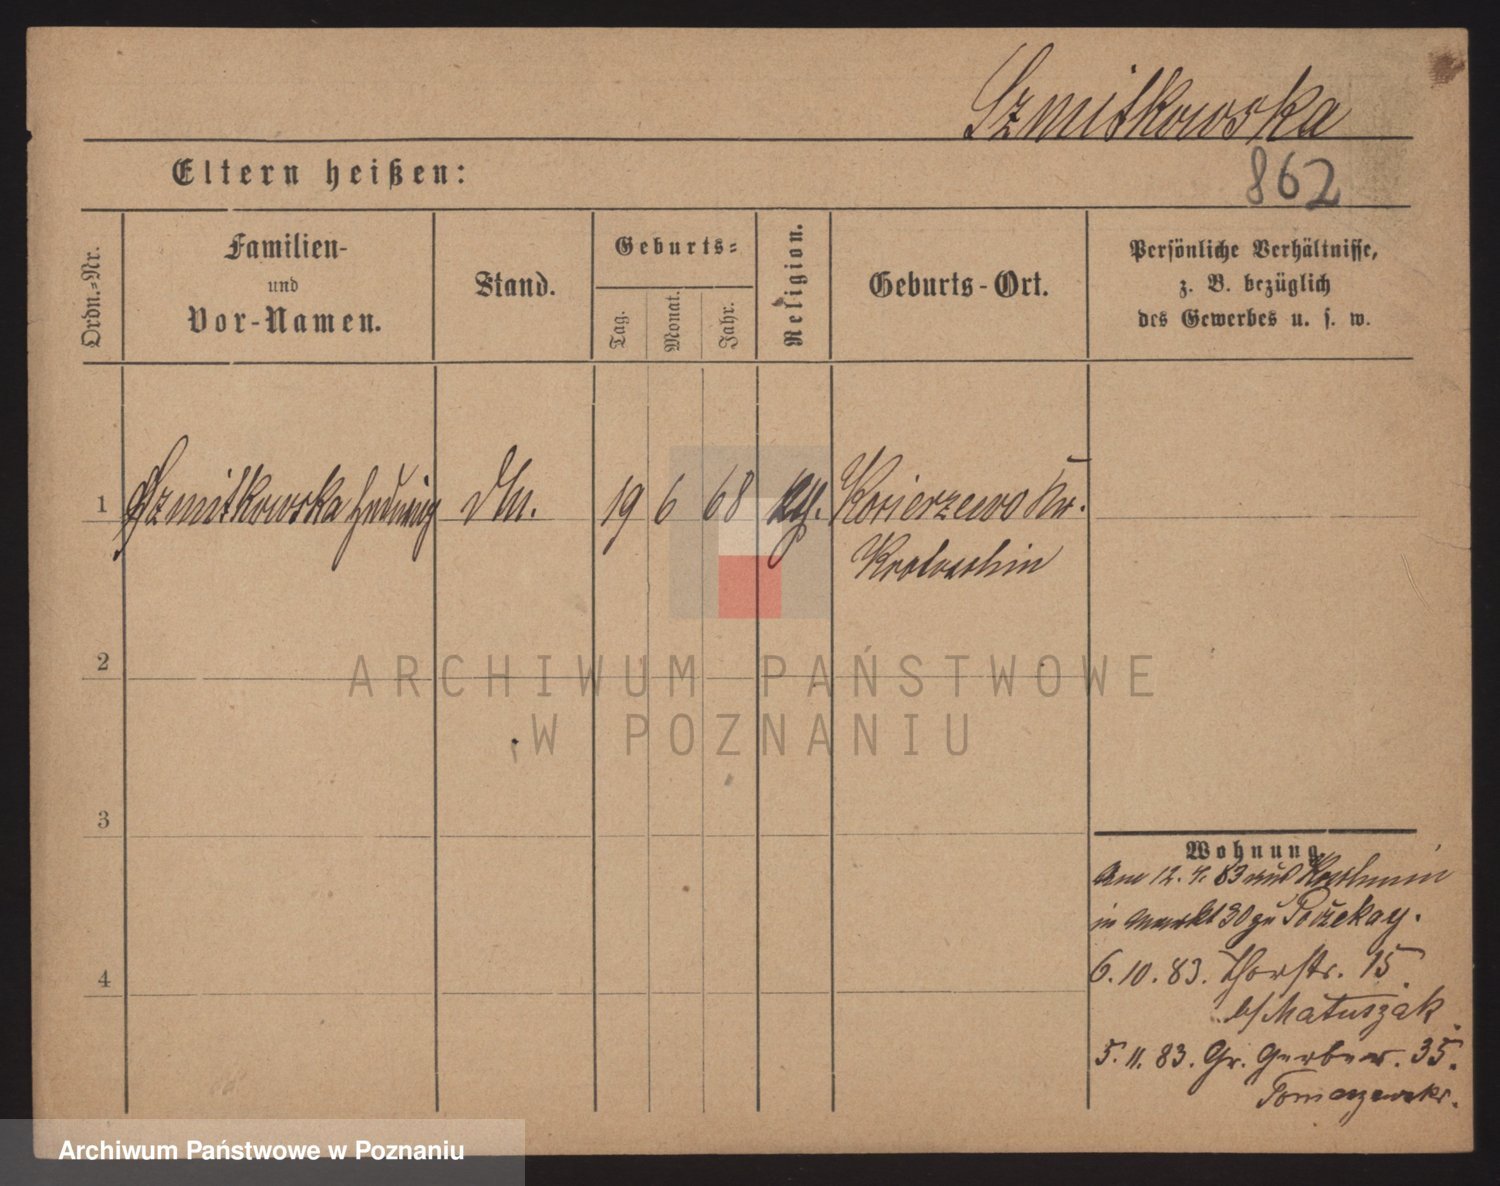 Szmitkowska
Eltern heißen:
862
Ordn.-Nr.
Familien-
und
Vor-Namen.
Stand.
Geburts-
Tag.
Monat.
Jahr.
Religion.
Geburts-Ort.
Persönliche Verhältnisse,
z. B. bezüglich
des Gewerbes u. s. w.
1 Szmitkowska Hedwig 19 6 68 Kr.
Krotoschin
2
ARCHIWUM PAŃSTWOWE
W POZNANIU
3
Wohnung.
Am 12. 4. 83 aus
in Markt 30 zu
4
6. 10. 83. Thorstr. 15
b/ Matuszak
5. 11. 83. Gr. Gerber. 35.
Tomaszewski.
Archiwum Państwowe w Poznaniu